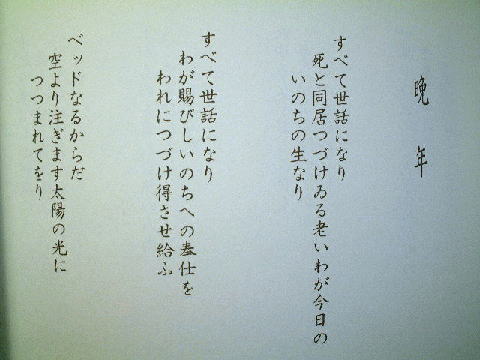 晩年
すべて世話になり
死と同居つづけゐる老いわが今日の
いのちの生なり
すべて世話になり
わが賜びしいのちへの奉仕を
われにつづけ得させ給ふ
ベッドなるからだ
空より注ぎます太陽の光に
つつまれてをり